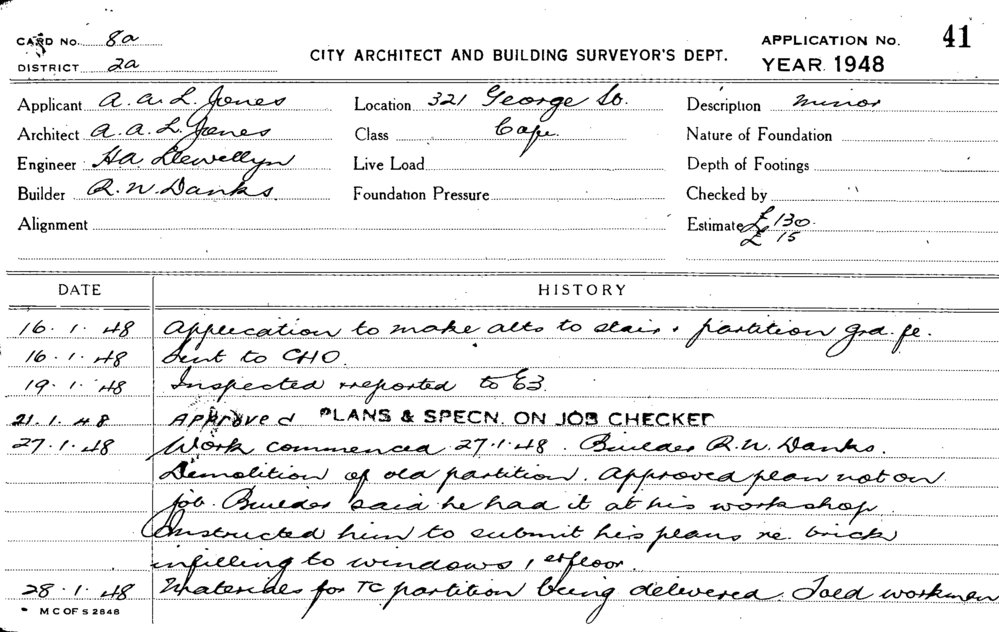 CARD No. 8a
DISTRICT 2a
CITY ARCHITECT AND BUILDING SURVEYOR'S DEPT.
APPLICATION No. 41
YEAR 1948
Applicant A. A. L. Jones Location 321 George St. Description minor
Architect A. A. L. Jones Class Cafe Nature of Foundation
Engineer H A. Llewellyn Live Load Depth of Footings
Builder R. W. Danks. Foundation Pressure Checked by
Alignment Estimate £ 130.
£ 15
DATE HISTORY
16. 1. 48 Application to make alts to stair & partition grd. fl.
16. 1. 48 Sent to CHO.
19. 1. 48 Inspected & reported to E3.
21. 1. 48 Approved PLANS & SPECN. ON JOB CHECKED
27. 1. 48 Work commenced 27.1.48. Builder R. W. Danks.
Demolition of old partition. Approved plan not on
job. Builder said he had it at his workshop
Instructed him to submit his plans re. brick
infilling to windows, 1st floor.
28. 1. 48 Materials for TC partition being delivered. Told workmen
M C OF S 2848